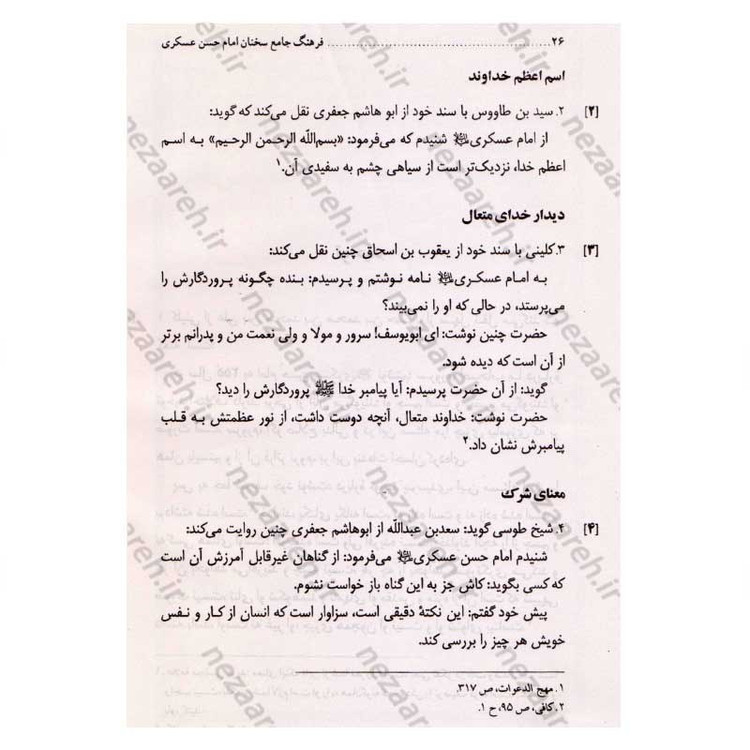 ۲۶ ............................................. فرهنگ جامع سخنان امام حسن عسکری
اسم اعظم خداوند
[۲] ۲. سید بن طاووس با سند خود از ابو هاشم جعفری نقل می‌کند که گوید:
از امام عسکری شنیدم که می‌فرمود: «بسم‌الله الرحمن الرحیم» به اسم
اعظم خدا، نزدیک‌تر است از سیاهی چشم به سفیدی آن.۱
دیدار خدای متعال
[۳] ۳. کلینی با سند خود از یعقوب بن اسحاق چنین نقل می‌کند:
به امام عسکری نامه نوشتم و پرسیدم: بنده چگونه پروردگارش را
می‌پرستد، در حالی که او را نمی‌بیند؟
حضرت چنین نوشت: ای ابویوسف! سرور و مولا و ولی نعمت من و پدرانم برتر
از آن است که دیده شود.
گوید: از آن حضرت پرسیدم: آیا پیامبر خدا ﷺ پروردگارش را دید؟
حضرت نوشت: خداوند متعال، آنچه دوست داشت، از نور عظمتش به قلب
پیامبرش نشان داد.۲
معنای شرک
[۴] ۴. شیخ طوسی گوید: سعدبن عبدالله از ابوهاشم جعفری چنین روایت می‌کند:
شنیدم امام حسن عسکری می‌فرمود: از گناهان غیرقابل آمرزش آن است
که کسی بگوید: کاش جز به این گناه باز خواست نشوم.
پیش خود گفتم: این نکتهٔ دقیقی است، سزاوار است که انسان از کار و نفس
خویش هر چیز را بررسی کند.
۱. مهج الدعوات، ص ۳۱۷.
۲. کافی، ص ۹۵، ح ۱.
nezaareh.ir
nezaareh.ir
nezaareh.ir
nezaareh.ir
nezaareh.ir
nezaareh.ir
nezaareh.ir
nezaareh.ir